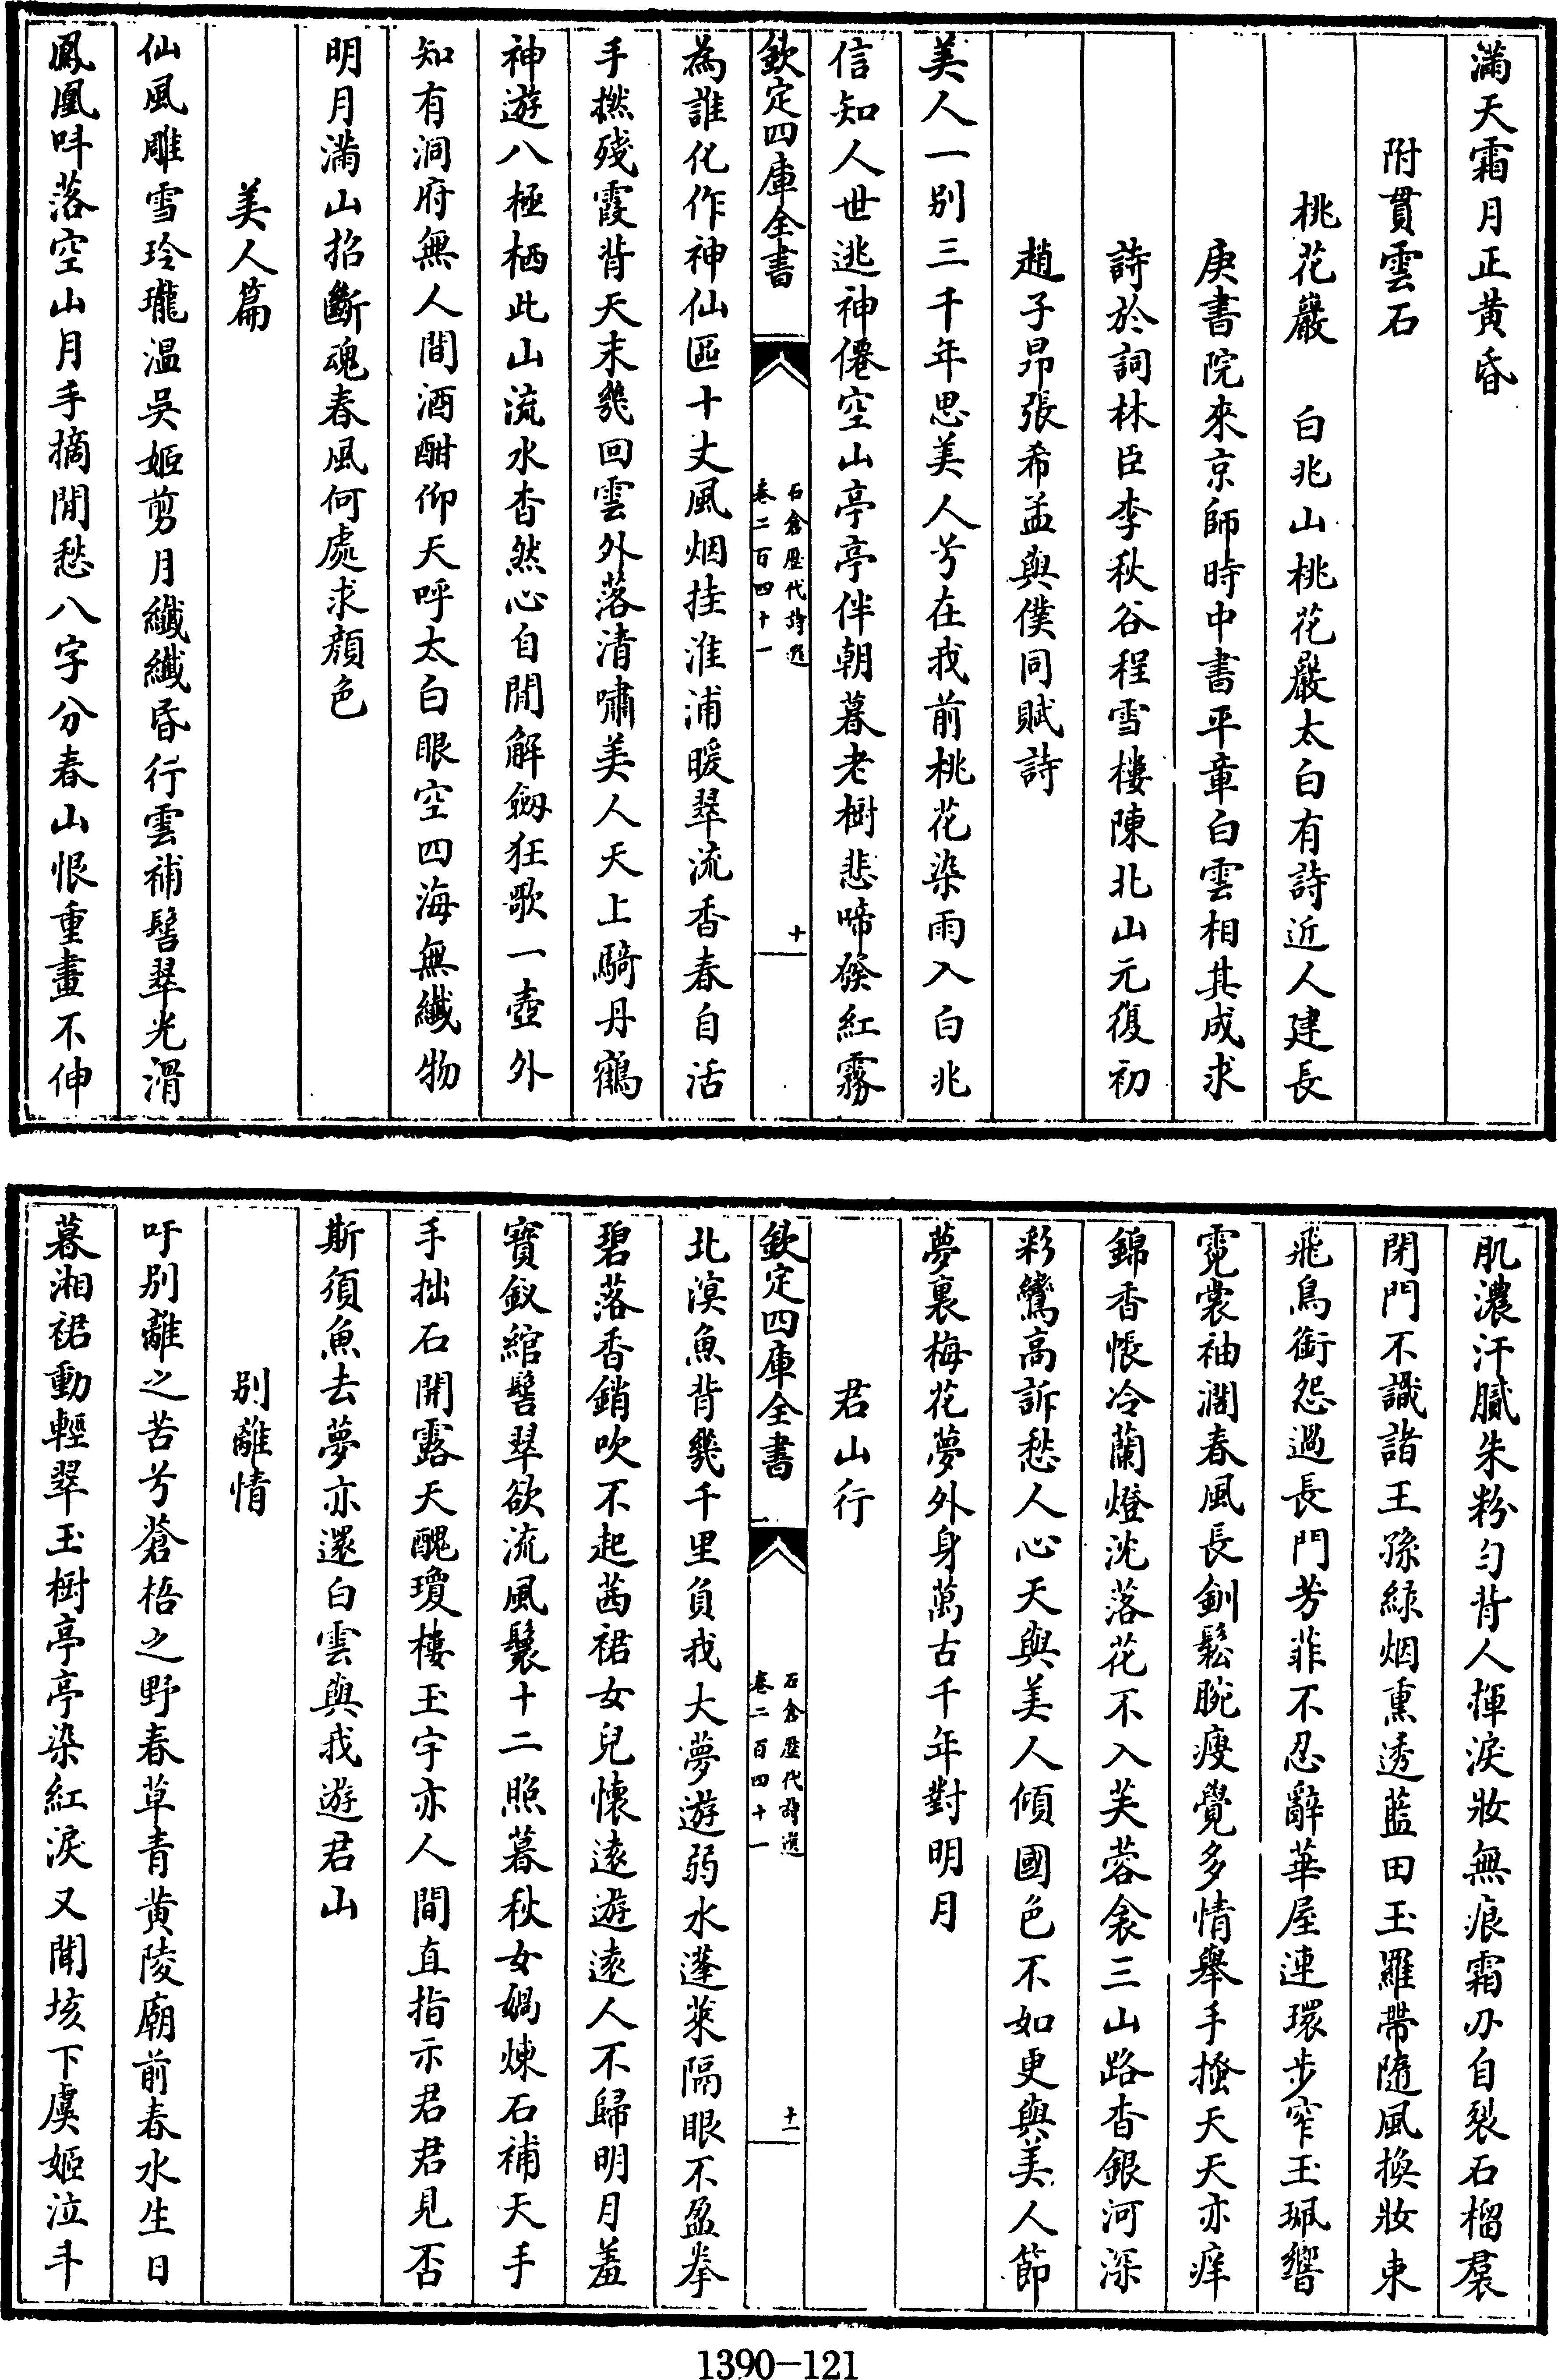 滿天霜月正黄昏
附貫雲石
桃花巖　白兆山桃花巖太白有詩近人建長
庚書院來京師時中書平章白雲相其成求
詩於詞林臣李秋谷程雪樓陳北山元復初
趙子昻張希孟與僕同賦詩
美人一别三千年思美人兮在我前桃花染雨入白兆
信知人世逃神僊空山亭亭伴朝暮老樹悲啼發紅霧
欽定四庫全書
石倉歷代詩選
卷二百四十一
十
為誰化作神仙區十丈風烟挂淮浦暖翠流香春自活
手撚殘霞背天末幾回雲外落清嘯美人天上騎丹鶴
神遊八極栖此山流水杳然心自閒解劔狂歌一壺外
知有洞府無人間酒酣仰天呼太白眼空四海無纖物
明月滿山招斷魂春風何處求顔色
美人篇
仙風雕雪玲瓏温吳姬剪月纖纖昏行雲補髻翠光滑
鳳凰呌落空山月手摘閒愁八字分春山恨重畫不伸
肌濃汗膩朱粉勻背人揮淚妝無痕霜刀自裂石榴裠
閉門不識諧王孫緑烟熏透藍田玉羅帶隨風換妝束
飛鳥銜怨過長門芳菲不忍辭華屋連環步窄玉珮響
霓裳袖濶春風長釧鬆腕瘦覺多情舉手搔天天亦痒
錦香悵冷蘭燈沈落花不入芙蓉衾三山路杳銀河深
彩鸞高訴愁人心天與美人傾國色不如更與美人節
夢裏梅花夢外身萬古千年對明月
君山行
欽定四庫全書
石倉歷代詩選
卷二百四十一
十一
北溟魚背幾千里負我大夢遊弱水蓬萊隔眼不盈拳
碧落香銷吹不起茜裙女兒懷遠遊遠人不歸明月羞
寶釵綰髻翠欲流風鬟十二照暮秋女媧煉石補天手
手拙石開露天醜瓊樓玉宇亦人間直指示君君見否
斯須魚去夢亦還白雲與我遊君山
别離情
吁别離之苦兮蒼梧之野春草青黄陵廟前春水生日
暮湘裙動輕翠玉樹亭亭染紅淚又聞垓下虞姬泣斗
1390-121